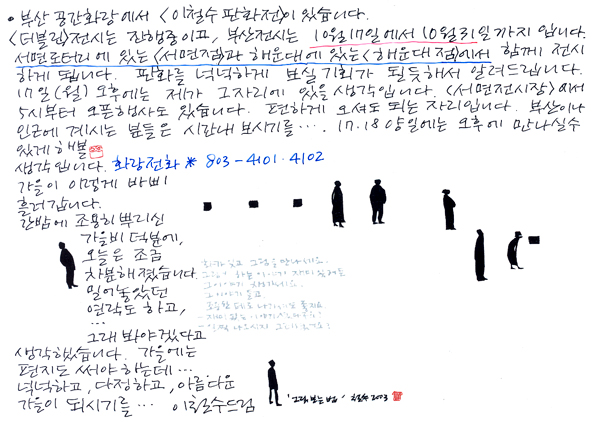 • 부산 공간화랑에서 <이철수 판화전>이 있습니다.
<더블린>전시는 진행중이고, 부산전시는 10월17일에서 10월31일까지 입니다.
서면로터리에 있는 <서면점>과 해운대에 있는 <해운대점>에서 함께 전시
하게 됩니다. 판화를 넉넉하게 보실 기회가 될듯해서 알려드립니다.
17일(월) 오후에는 제가 그자리에 있을 생각입니다. <서면전시장>에서
5시부터 오픈행사도 있습니다. 편하게 오셔도 되는 자리입니다. 부산이나
인근에 계시는 분들은 시간내 보시기를…. 17.18 양일에는 오후에 만나실수
있게 해볼
생각입니다. 화랑전화 * 803-4101·4102
가을이 이렇게 바삐
흘러갑니다.
간밤에 조용히 뿌리신
가을비 덕분에,
오늘은 조금
차분해졌습니다.
밀어놓았던
연락도 하고,
…
그래 봐야겠다고
생각했습니다. 가을에는
편지도 써야 하는데…
넉넉하고, 다정하고, 아름다운
가을이 되시기를… 이철수드림
'그림 보는 법' 철수 2003